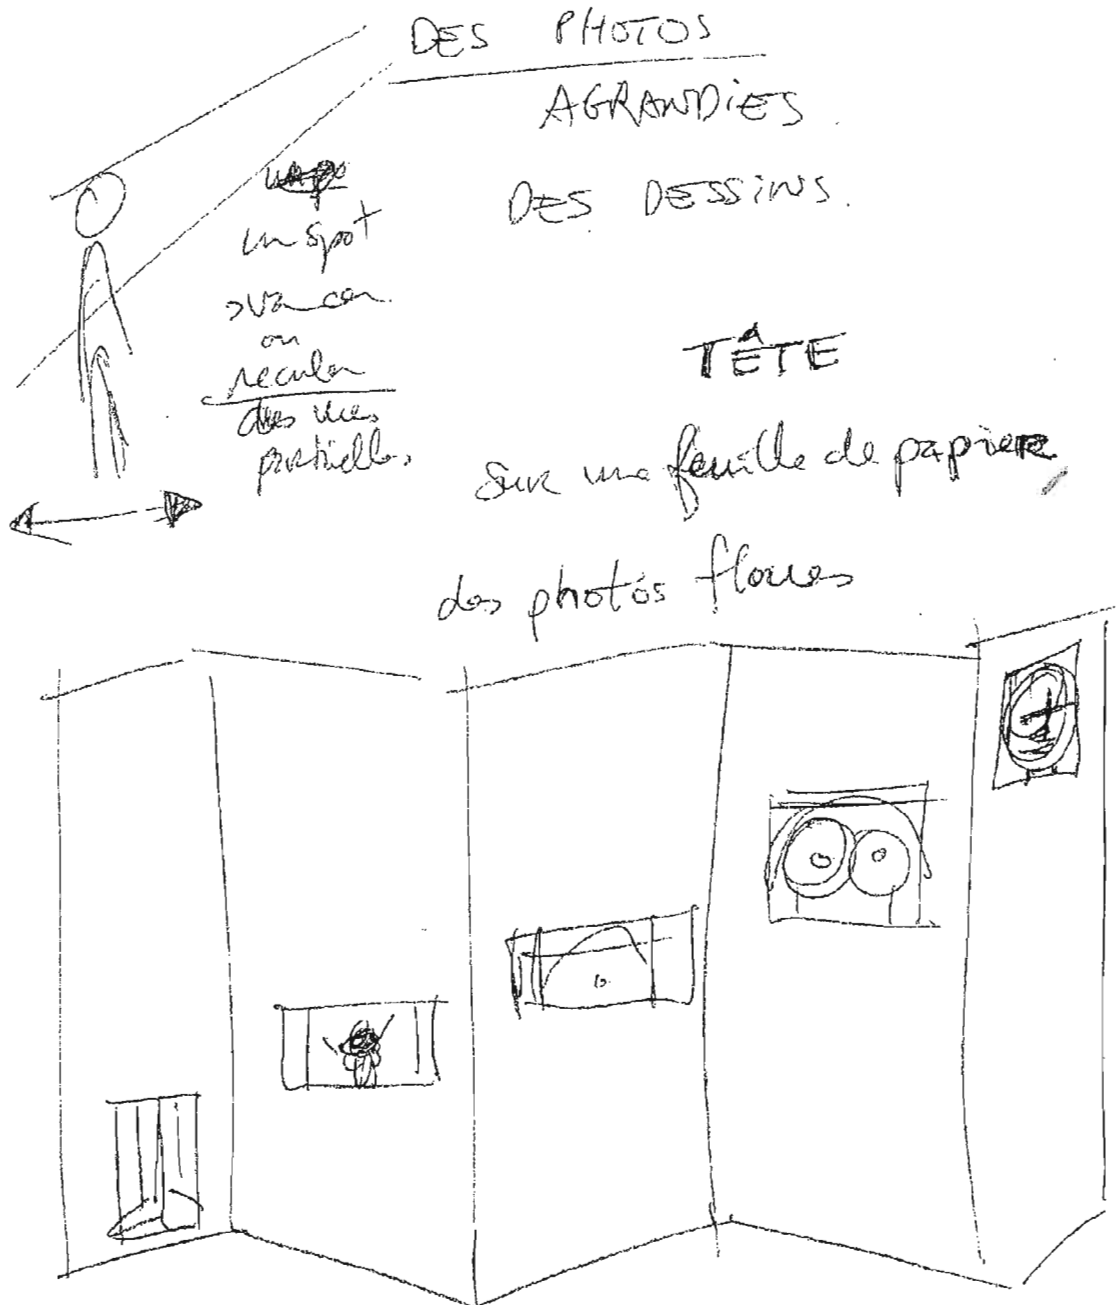 DES PHOTOS
AGRANDIES
DES DESSINS.
un spot
avancer
ou
reculer
des vues
partielles
TÊTE
sur une feuille de papier
des photos floues